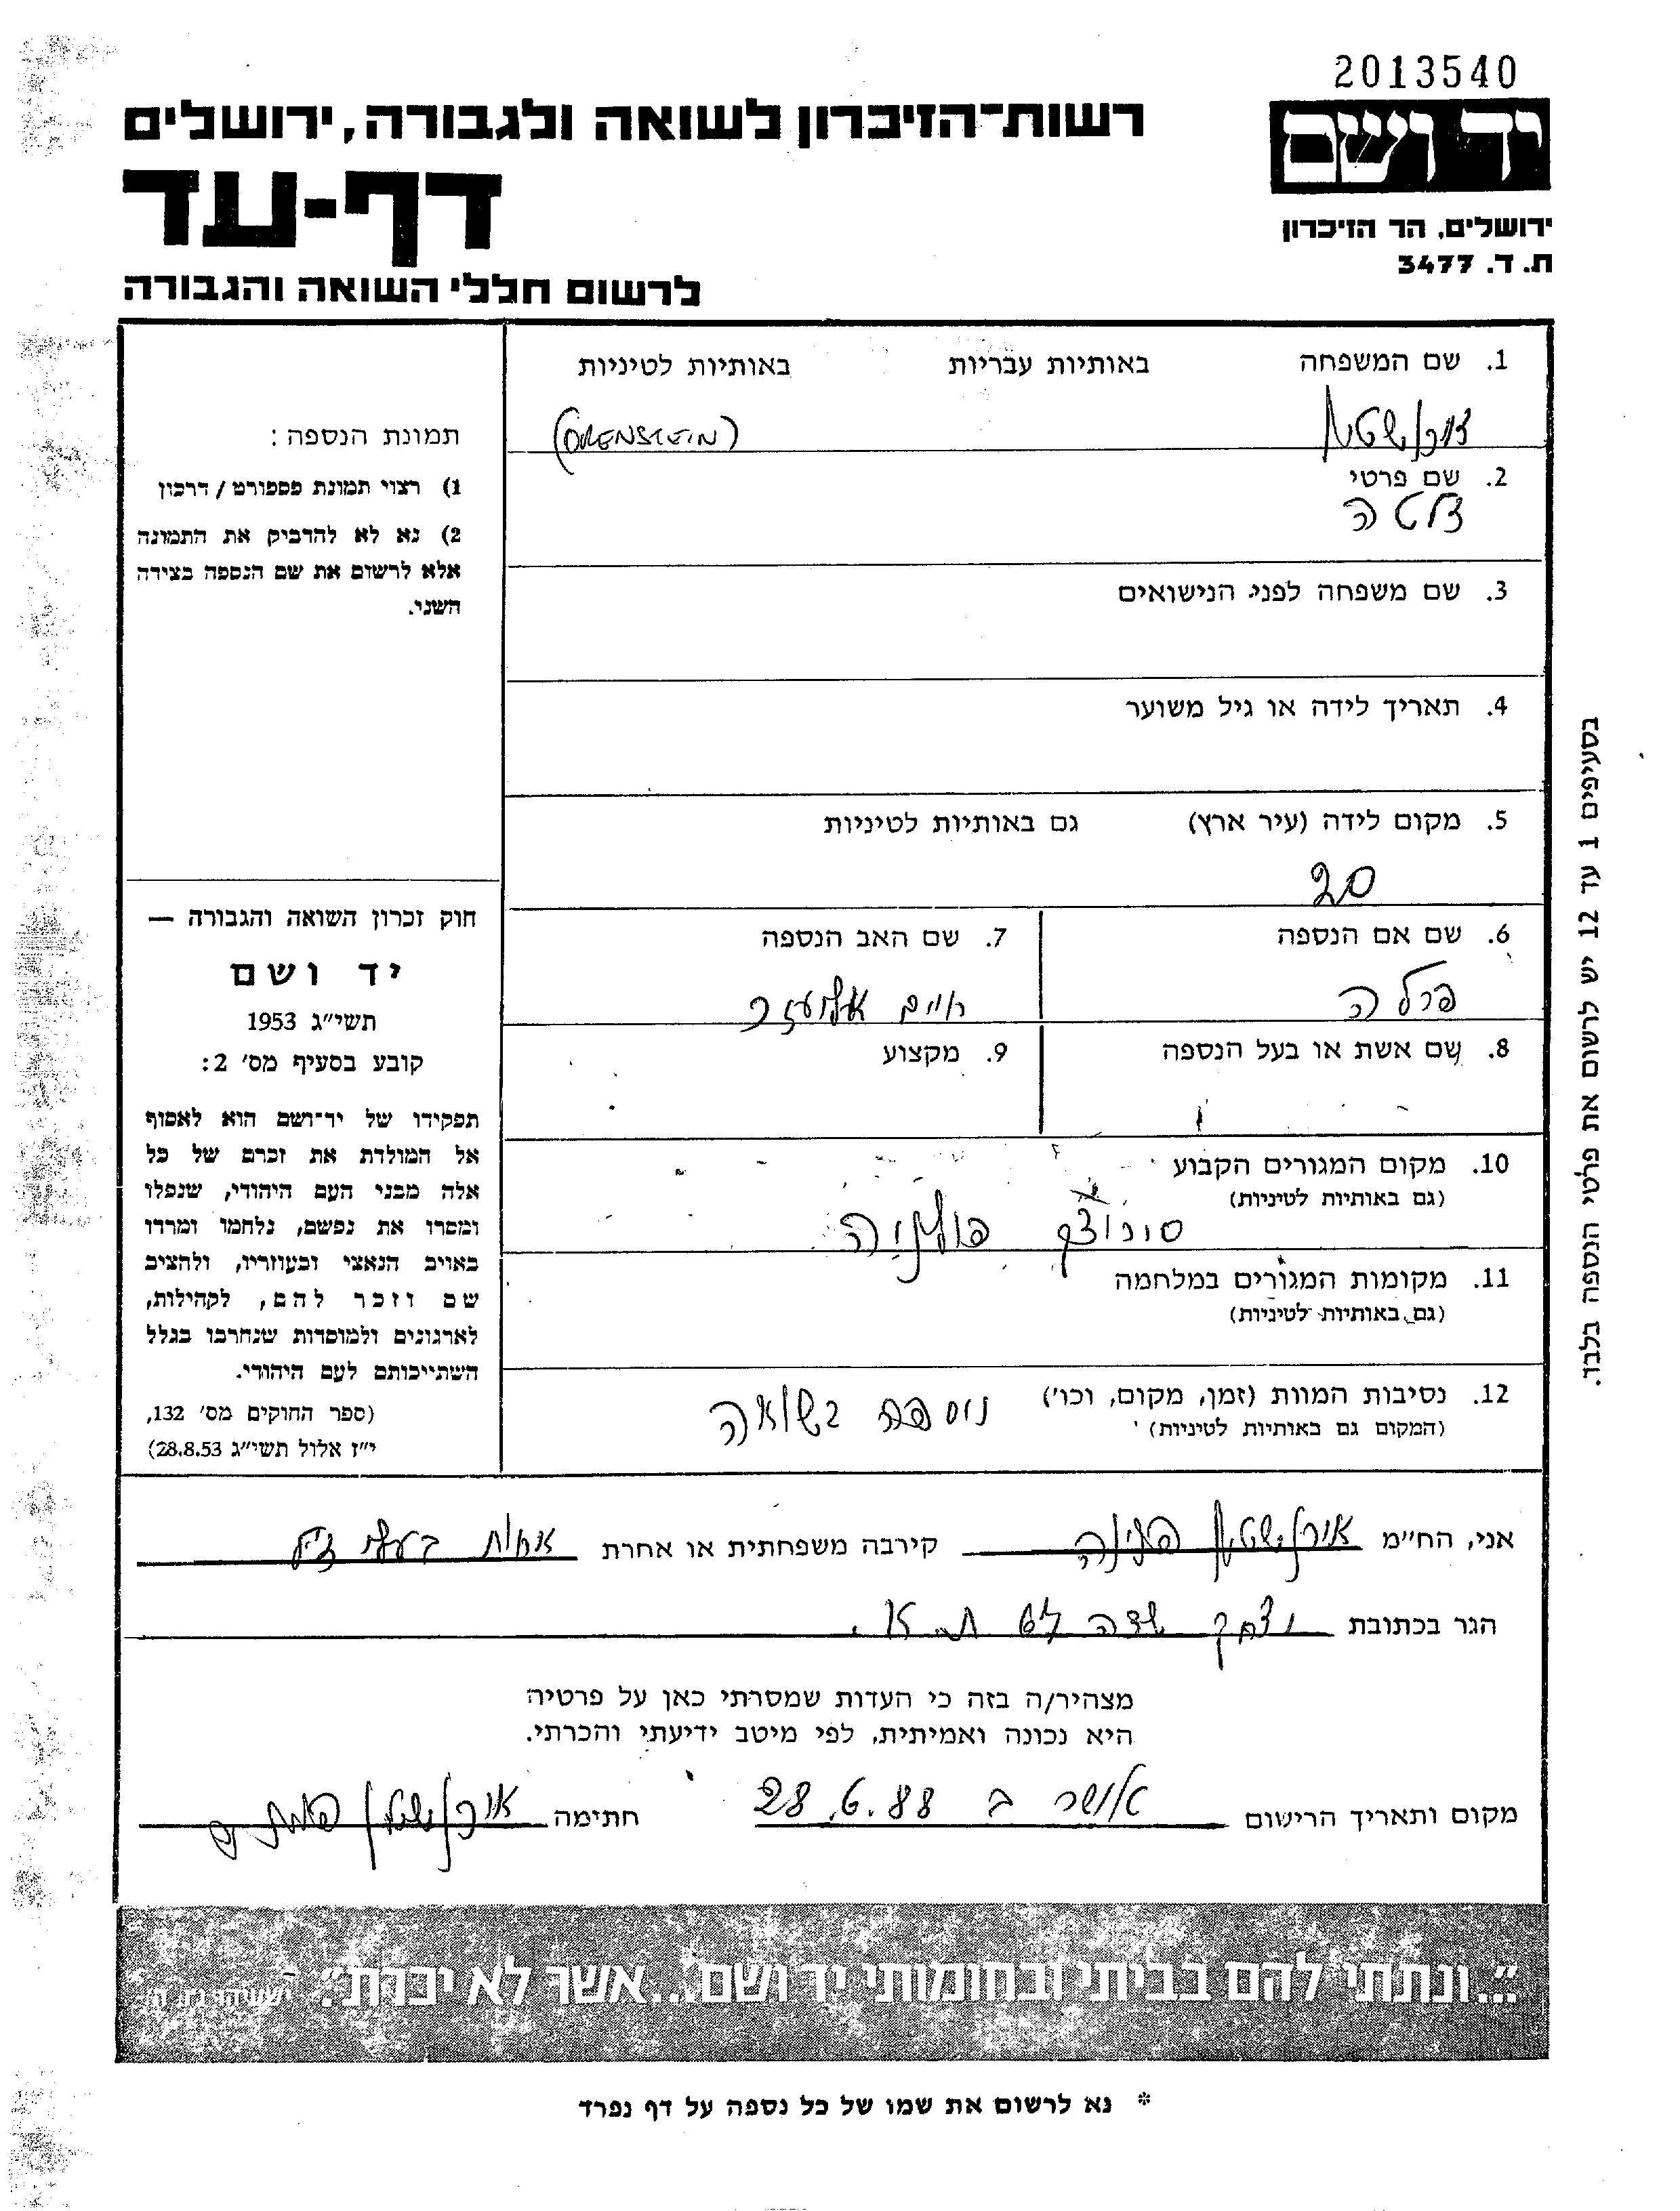 2013540
יד ושם
ירושלים, הר הזיכרון
ת. ד. 3477
רשות־הזיכרון לשואה ולגבורה, ירושלים
דף-עד
לרשום חללי השואה והגבורה
1. שם המשפחה באותיות עבריות באותיות לטיניות
אורנשטין (ORENSTEIN)
2. שם פרטי
3. שם משפחה לפני הנישואים
4. תאריך לידה או גיל משוער
5. מקום לידה (עיר ארץ) גם באותיות לטיניות
20
6. שם אם הנספה
פרלה
7. שם האב הנספה
חיים אליעזר
8. שם אשת או בעל הנספה
9. מקצוע
10. מקום המגורים הקבוע
(גם באותיות לטיניות)
פולניה
11. מקומות המגורים במלחמה
(גם באותיות לטיניות)
12. נסיבות המוות (זמן, מקום, וכו') נוספה בשואה
(המקום גם באותיות לטיניות)
תמונת הנספה:
1) רצוי תמונת פספורט / דרכון
2) נא לא להדביק את התמונה
אלא לרשום את שם הנספה בצידה
השני.
חוק זכרון השואה והגבורה —
יד ושם
תשי״ג 1953
קובע בסעיף מס׳ 2:
תפקידו של יד־ושם הוא לאסוף
אל המולדת את זכרם של כל
אלה מבני העם היהודי, שנפלו
ומסרו את נפשם, נלחמו ומרדו
באויב הנאצי ובעוזריו, ולהציב
שם וזכר להם, לקהילות,
לארגונים ולמוסדות שנחרבו בגלל
השתייכותם לעם היהודי.
(ספר החוקים מס׳ 132,
י״ז אלול תשי״ג 28.8.53)
בסעיפים 1 עד 12 יש לרשום את פרטי הנספה בלבד.
אני, הח״מ אורנשטין פנינה קירבה משפחתית או אחרת אחות בעלי ז״ל
הגר בכתובת יצחק שדה ת.א.
מצהיר/ה בזה כי העדות שמסרתי כאן על פרטיה
היא נכונה ואמיתית, לפי מיטב ידיעתי והכרתי.
מקום ותאריך הרישום 28.6.88 חתימה אורנשטין פנינה
״...ונתתי להם בביתי ובחומותי יד ושם...אשר לא יכרת״. ישעיהו נו, ה׳
* נא לרשום את שמו של כל נספה על דף נפרד